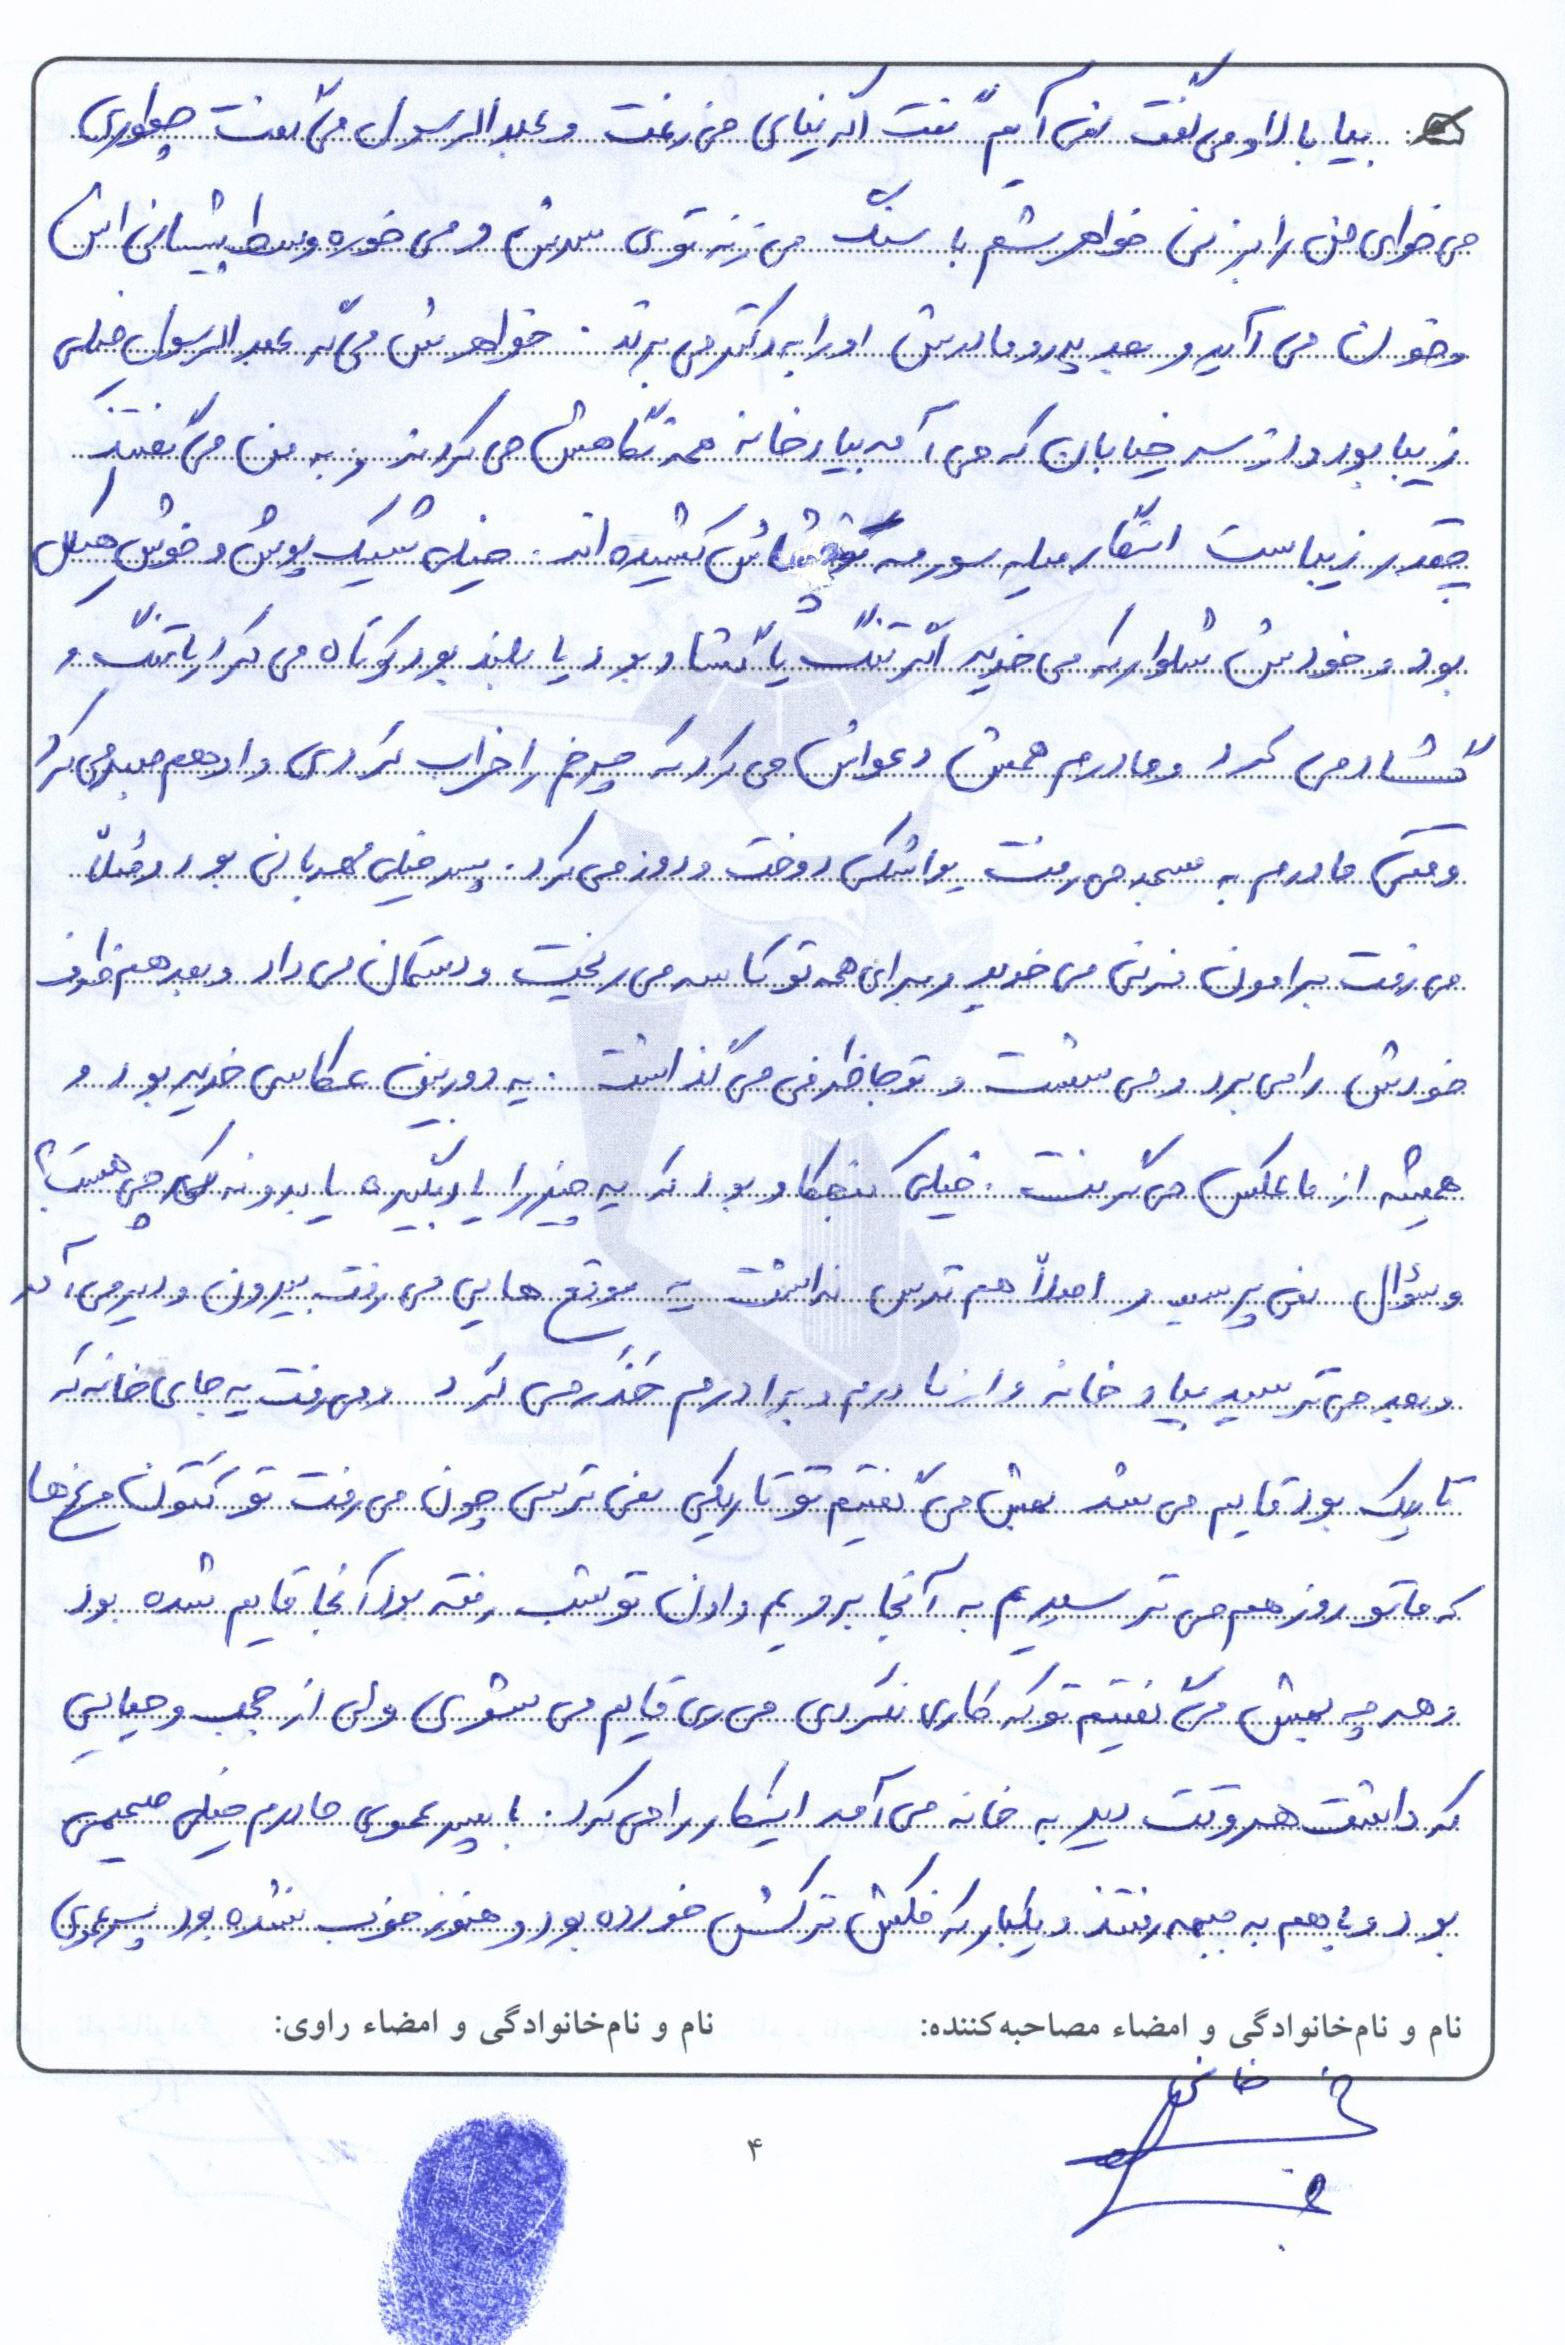 بیا بالا و می گفت نمی آیم گفت اگه نیای می زنمت و عبدالرسول می گفت چطوری
می خوای من را بزنی خواهرشم با سنگ می زنه توی سرش و می خوره وسط پیشانی اش
و خون می آید و بعد پدر و مادرش او را به دکتر می برند. خواهرش می گه عبدالرسول خیلی
زیبا بود و از سر خیابان که می آمد بیاد خانه همه نگاهش می کردند و به من می گفتند
چقدر زیباست انگار میله سورمه تو چشماش کشیده اند. خیلی شیک پوش و خوش هیکل
بود و خودش شلوار که می خرید اگر تنگ یا گشاد بود یا بلند بود کوتاه می کرد یا تنگ و
گشاد می کرد و مادرم همش دعواش می کرد که چرخم را خراب کردی و او هم صبر می کرد
وقتی مادرم به مسجد می رفت یواشکی دوخت و دوز می کرد. پسر خیلی مهربانی بود و مثلاً
می رفت برامون فرنی می خرید و برای همه تو کاسه می ریخت و دستمان می داد و بعد هم ظرف
خودش را می برد و می شست و تو جا ظرفی می گذاشت. یه دوربین عکاسی خریده بود و
همیشه از ما عکس می گرفت. خیلی کنجکاو بود که یه چیز را یاد بگیره یا بدونه چی هست؟
و سؤال نمی پرسید و اصلاً هم ترس نداشت یه موقع هایی می رفت بیرون و دیر می آمد
و بعد می ترسید بیاد خانه و از مادرم و برادرم حذر می کرد و می رفت یه جای خانه که
تاریک بود قایم می شد بهش می گفتیم تو تاریکی نمی ترسی چون می رفت تو کتون مرغ ها
که ما تو روز هم می ترسیدیم به آنجا برویم و اون تو شب رفته بود آنجا قایم شده بود
و هر چه بهش می گفتیم تو که کاری نکردی می ری قایم می شوی ولی از حجب و حیایی
که داشت هر وقت دیر به خانه می آمد اینکار را می کرد. با پسر عموی مادرم خیلی صمیمی
بود و با هم به جبهه رفتند و یکبار که فکش ترکش خورده بود و هنوز خوب نشده بود پسرعموی
نام و نام‌خانوادگی و امضاء مصاحبه‌کننده: نام و نام‌خانوادگی و امضاء راوی:
۴